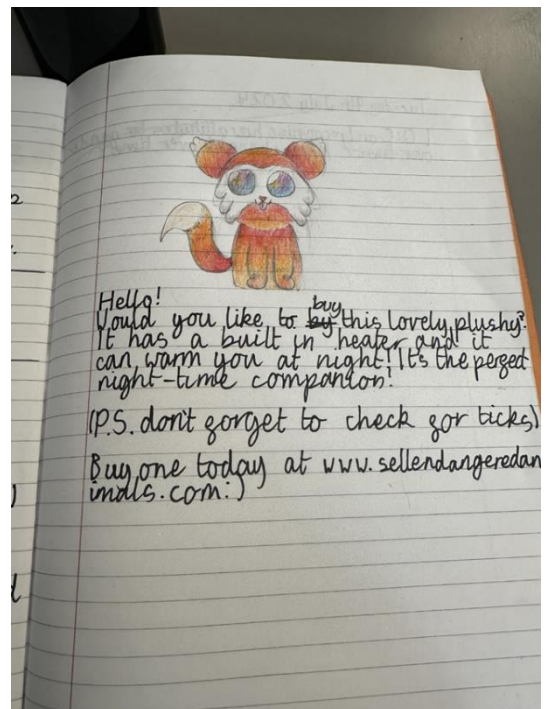 Hello!
buy
Would you like to by this lovely plushy?
It has a built in heater and it
can warm you at night! It's the perfect
night-time companion!
(P.S. don't forget to check for ticks)
Buy one today at www.sellendangeredan
imals.com:)